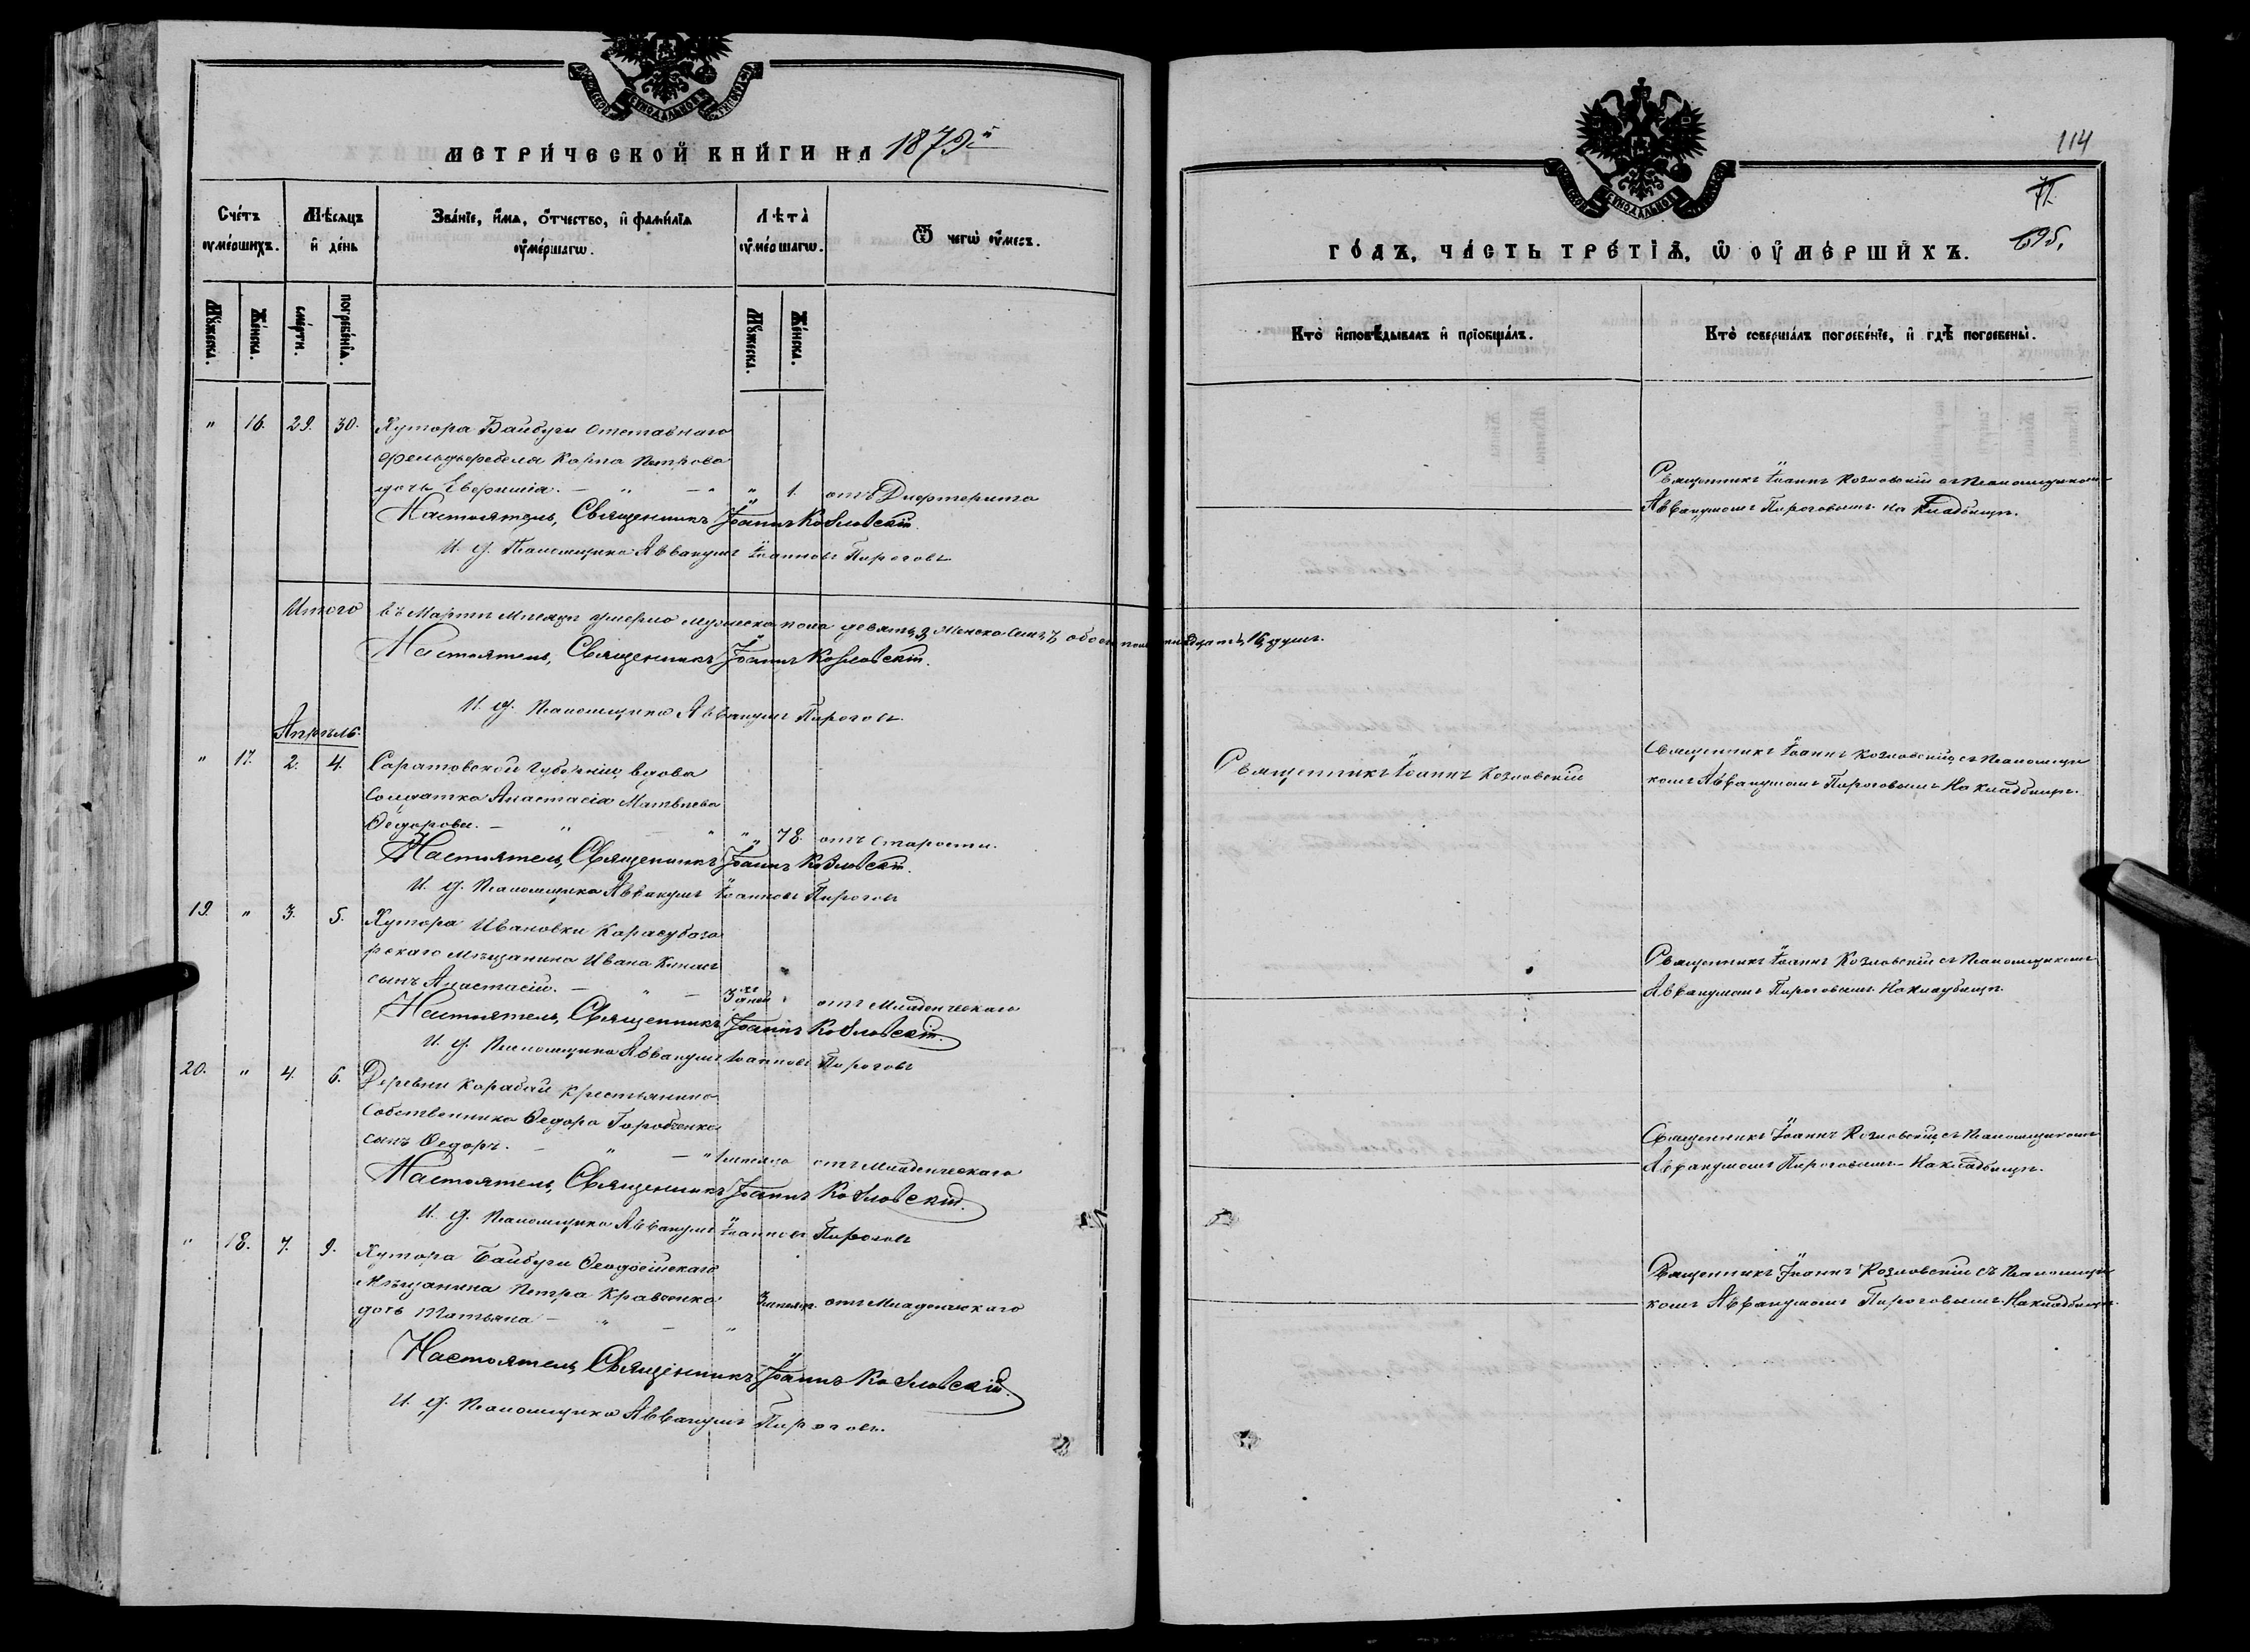 МЕТРИ́ЧЕСКОЙ КНИ́ГИ НА 1879й
Сче́тъ ᲂу҆ме́ршихъ.
Мѣ́сяцъ и҆ де́нь
Зва́нїе, и҆́мѧ, ѻ҆́тчество, и҆ фами́лїѧ ᲂу҆ме́ршагѡ.
Лѣта̀ ᲂу҆ме́ршагѡ.
Ѿ чегѡ̀ ᲂу҆́меръ.
Мꙋ́жеска.
Же́нска.
сме́рти.
погребе́нїѧ.
Мꙋ́жеска.
Же́нска.
" 16. 29. 30. Хутора Байбуги отставнаго
фельдфебеля Карпа Петрова
дочь Евфимія. — " — " " 1. отъ Дифтерита
Настоятель, Священникъ Іоаннъ Козловскій.
И. д. Псаломщика Аввакумъ Іоанновъ Пироговъ
Итого въ Мартѣ Мѣсяцѣ умерло мужеска пола девять, 9, Женска семь, 7, обоего пола шестнадцать, 16, душъ.
Настоятель, Священникъ Іоаннъ Козловскій.
И. д. Псаломщика Аввакумъ Пироговъ.
Апрѣль.
" 17. 2. 4. Саратовской Губерніи, вдова
Солдатка Анастасія Матвѣева
Ѳедорова. — " — " " 78. отъ Старости.
Настоятель, Священникъ Іоаннъ Козловскій.
И. д. Псаломщика Аввакумъ Іоанновъ Пироговъ
19. " 3. 5. Хутора Ивановки Карасубаза
рскаго мѣщанина Ивана
сынъ Анастасій. — " — 3 дней отъ Младенческаго
Настоятель, Священникъ Іоаннъ Козловскій.
И. д. Псаломщика Аввакумъ Іоанновъ Пироговъ
20. " 4. 6. Деревни Карабай крестьянина
Собственника Ѳедора Горобченко
сынъ Ѳедоръ. — " — " отъ Младенческаго
Настоятель, Священникъ Іоаннъ Козловскій.
И. д. Псаломщика Аввакумъ Іоанновъ Пироговъ
" 18. 7. 9. Хутора Байбуги Ѳеодосійскаго
Мѣщанина Петра Кравченко
дочь Татьяна — " — " отъ Младенческаго
Настоятель, Священникъ Іоаннъ Козловскій.
И. д. Псаломщика Аввакумъ Пироговъ.
114
ГО́ДЪ, ЧА́СТЬ ТРЕ́ТЇѦ, Ѡ҆ ОУ҆МЕ́РШИХЪ.
695.
Кто̀ и҆сповѣ́дывалъ и҆ прїобща́лъ.
Кто̀ соверша́лъ погребе́нїе, и҆ гдѣ̀ погребены̀.
Священникъ Іоаннъ Козловскій съ Псаломщикомъ
Аввакумомъ Пироговымъ на Кладбищѣ.
Священникъ Іоаннъ Козловскій
Священникъ Іоаннъ Козловскій, съ Псаломщи
комъ Аввакумомъ Пироговымъ На кладбищѣ.
Священникъ Іоаннъ Козловскій съ Псаломщикомъ
Аввакумомъ Пироговымъ На кладбищѣ.
Священникъ Іоаннъ Козловскій, съ Псаломщикомъ
Аввакумомъ Пироговымъ На кладбищѣ.
Священникъ Іоаннъ Козловскій съ Псаломщи
комъ Аввакумомъ Пироговымъ На кладбищѣ.